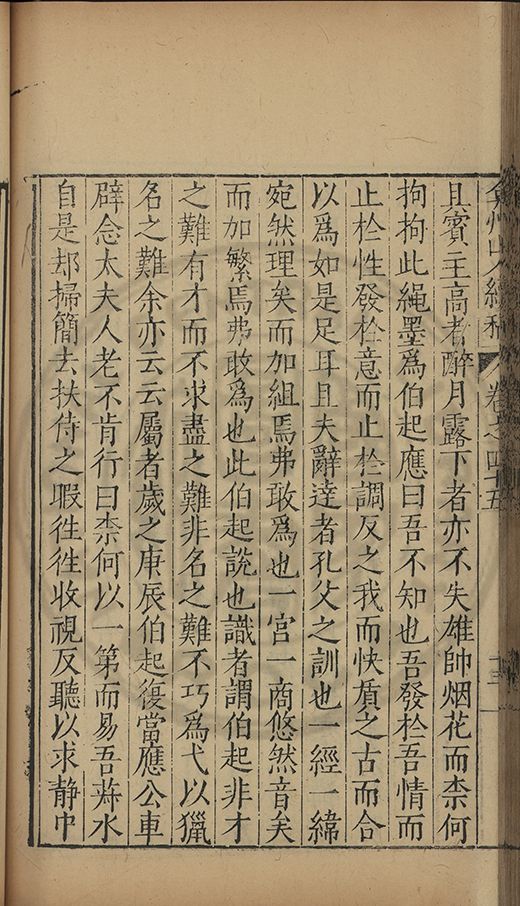 弇州山人續稿 卷之四十五 十三
且賓主高者醉月露下者亦不失雄帥烟花而柰何
拘拘此繩墨爲伯起應曰吾不知也吾發於吾情而
止於性發於意而止於調反之我而快質之古而合
以爲如是足耳且夫辭達者孔父之訓也一經一緯
宛然理矣而加組焉弗敢爲也一宮一商悠然音矣
而加繁焉弗敢爲也此伯起說也識者謂伯起非才
之難有才而不求盡之難非名之難不巧爲弋以獵
名之難余亦云云屬者歲之庚辰伯起復當應公車
辟念太夫人老不肯行曰柰何以一第而易吾菽水
自是却掃簡去扶侍之暇徃徃收視反聽以求静中